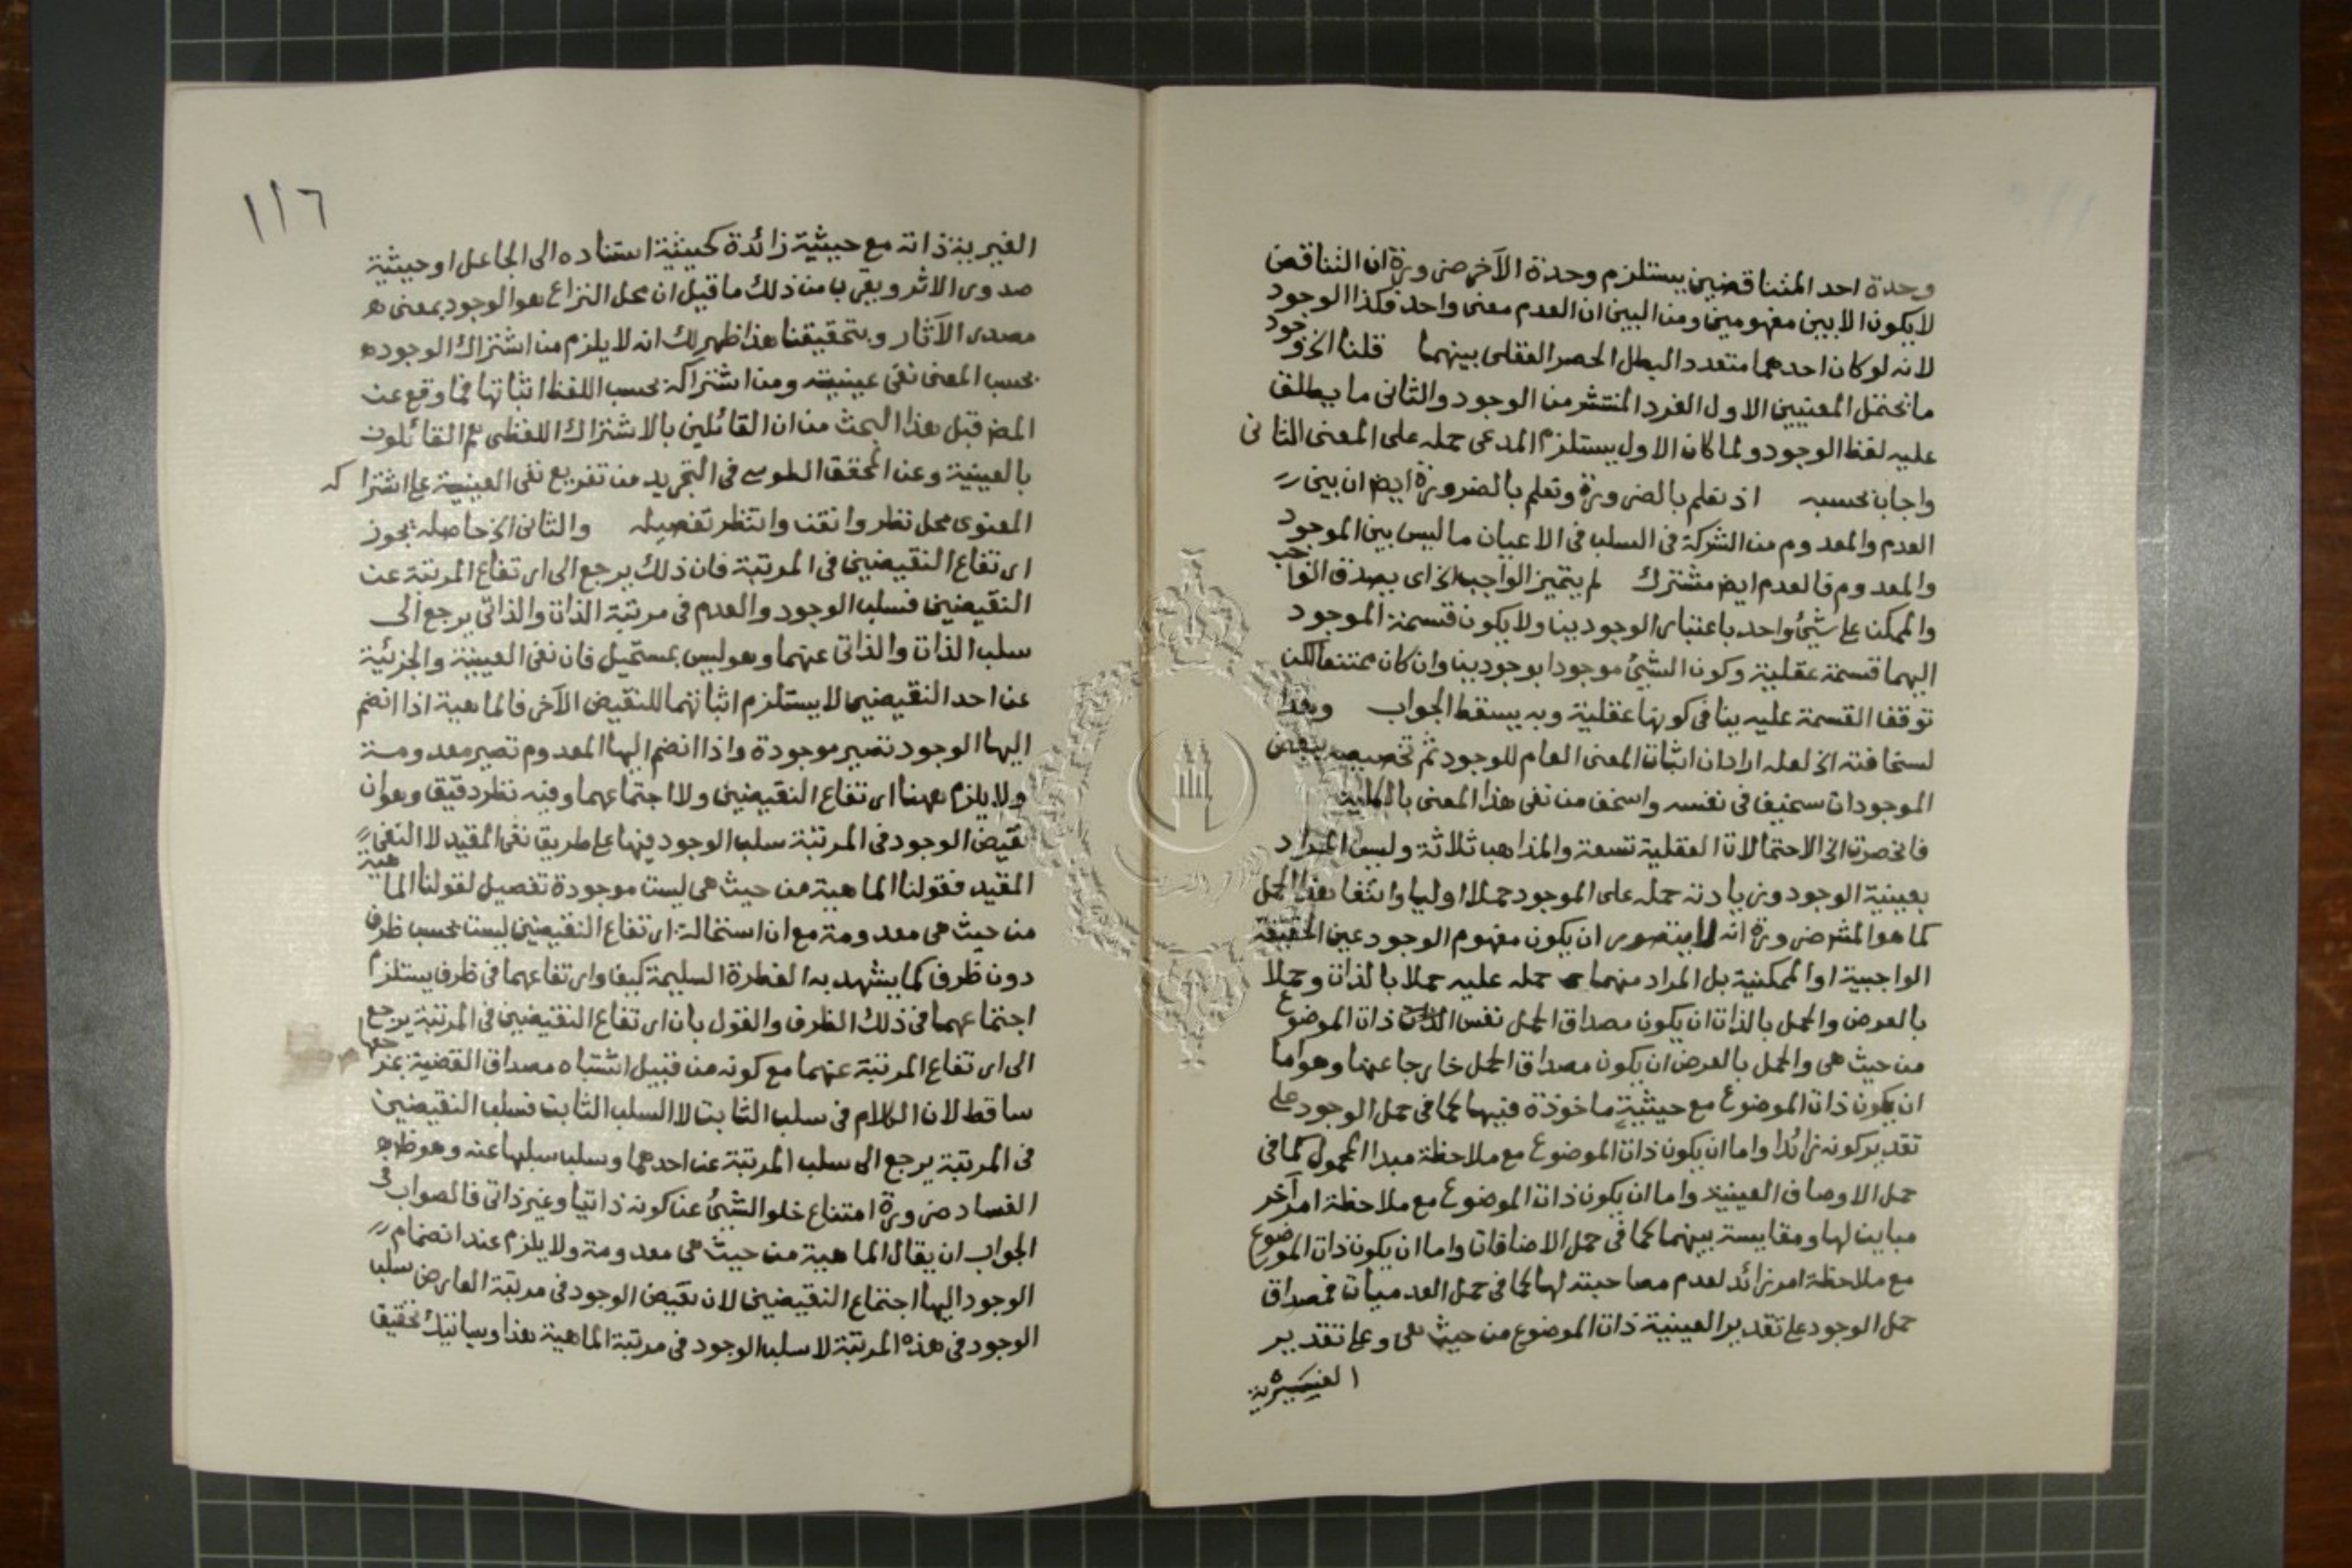 وحدة احد المتناقضين يستلزم وحدة الآخر ضرورة ان التناقض
لا يكون الا بين مفهومين ومن البين ان العدم معنى واحد فكذا الوجود
لانه لو كان احدهما متعددا لبطل الحصر العقلى بينهما قلنا الخ
ما تحتمل المعنيين الاول الفرد المنتشر من الوجود والثانى ما يطلق
عليه لفظ الوجود ولما كان الاول يستلزم المدعى حمله على المعنى الثانى
واجاب بحسبه اذ نعلم بالضرورة ونعلم بالضرورة ايض ان بين
العدم والمعدوم من الشركة فى السلب فى الاعيان ما ليس بين الموجود
والمعدوم فالعدم ايض مشترك لم يتميز الواجب الخ اى يصدق الواجب
والممكن على شئ واحد باعتبار الوجودين ولا يكون قسمة الموجود
اليهما قسمة عقلية وكون الشئ موجودا بوجودين وان كان ممتنعا لكن
توقف القسمة عليه ينافى كونها عقلية وبه يسقط الجواب وهذا
لسخافته الخ لعله اراد ان اثبات المعنى العام للوجود ثم تخصيصه ببعض
الموجودات سخيف فى نفسه واسخف من نفى هذا المعنى بالكلية
فانحصرت الخ الاحتمالات العقلية تسعة والمذاهب ثلاثة وليس المراد
بعينية الوجود وزيادته حمله على الموجود حملا اوليا وانتفا هذا الحمل
كما هو المش ضرورة انه لا يتصور ان يكون مفهوم الوجود عين الحقيقة
الواجبية او الممكنية بل المراد منهما حمله عليه حملا بالذات وحملا
بالعرض والحمل بالذات ان يكون مصداق الحمل نفس ذات الموضوع
من حيث هى والحمل بالعرض ان يكون مصداق الحمل خارجا عنها وهو اما
ان يكون ذات الموضوع مع حيثية ماخوذة فيها كما فى حمل الوجود على
تقدير كونه زائدا واما ان يكون ذات الموضوع مع ملاحظة مبدا المحمول كما فى
حمل الاوصاف العينية واما ان يكون ذات الموضوع مع ملاحظة امر آخر
مباين لها ومقايسة بينهما كما فى حمل الاضافات واما ان يكون ذات الموضوع
مع ملاحظة امر زائد لعدم مصاحبته لها كما فى حمل العدميات فمصداق
حمل الوجود على تقدير العينية ذات الموضوع من حيث هى وعلى تقدير
الغيرية
١١٦
الغيرية ذاته مع حيثية زائدة كحيثية استناده الى الجاعل او حيثية
صدور الاثر ويقرب من ذلك ما قيل ان محل النزاع هو الوجود بمعنى
مصدر الآثار وبتحقيقنا هذا ظهر لك انه لا يلزم من اشتراك الوجود
بحسب المعنى نفى عينيته ومن اشتراكه بحسب اللفظ اثباتها فما وقع عن
المص قبل هذا البحث من ان القائلين بالاشتراك اللفظى هم القائلون
بالعينية وعن المحقق الطوسى فى التجريد من تفريع نفى العينية على اشتراكه
المعنوى محل نظر واتقن وانتظر تفصيله والثانى الخ حاصله يجوز
ارتفاع النقيضين فى المرتبة فان ذلك يرجع الى ارتفاع المرتبة عن
النقيضين فسلب الوجود والعدم فى مرتبة الذات والذاتى يرجع الى
سلب الذات والذاتى عنهما وهو ليس بمستحيل فان نفى العينية والجزئية
عن احد النقيضين لا يستلزم اثباتهما للنقيض الآخر فالماهية اذا انضم
اليها الوجود تصير موجودة واذا انضم اليها المعدوم تصير معدومة
ولا يلزم ههنا ارتفاع النقيضين ولا اجتماعهما وفيه نظر دقيق وهو ان
نقيض الوجود فى المرتبة سلب الوجود فيها على طريق نفى المقيد لا النفى
المقيد فقولنا الماهية من حيث هى ليست موجودة تفصيل لقولنا الماهية
من حيث هى معدومة مع ان استحالة ارتفاع النقيضين ليست بحسب ظرف
دون ظرف كما يشهد به الفطرة السليمة كيف وارتفاعهما فى ظرف يستلزم
اجتماعهما فى ذلك الظرف والقول بان ارتفاع النقيضين فى المرتبة يرجع
الى ارتفاع المرتبة عنهما مع كونه من قبيل اشتباه مصداق القضية
ساقط لان الكلام فى سلب الثابت لا السلب الثابت فسلب النقيضين
فى المرتبة يرجع الى سلب المرتبة عن احدهما وسلب سلبها عنه وهو ظاهر
الفساد ضرورة امتناع خلو الشئ عن كونه ذاتيا وغير ذاتى فالصواب فى
الجواب ان يقال الماهية من حيث هى معدومة ولا يلزم عند انضمام
الوجود اليها اجتماع النقيضين لان نقيض الوجود فى مرتبة العارض سلب
الوجود فى هذه المرتبة لا سلب الوجود فى مرتبة الماهية هذا وسيأتيك تحقيق